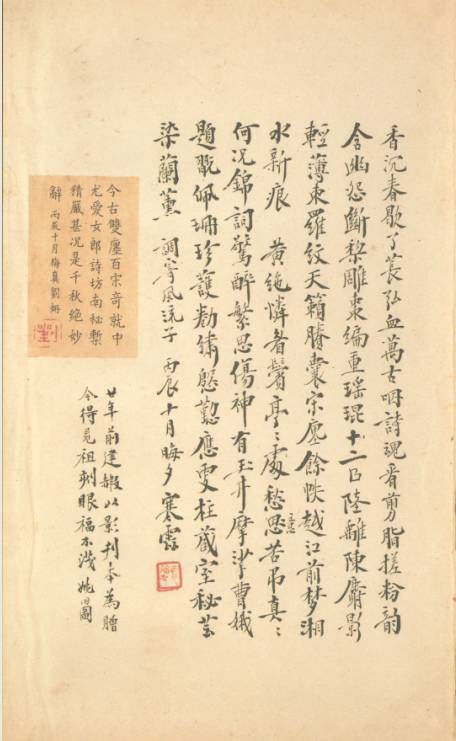 香沉春歇了萇弘血萬古咽詩魂看剪脂搓粉韵
含幽怨斷梨雕棗編重瑤琨十二陸離陳麝影
輕薄束羅紋天籟賸囊宋廛餘帙越江前夢湘
水新痕 黃絁憐者鬢亭〻處愁思苦弔真〻
何況錦詞驚醉繁思傷神有玉井摩挲曹娥
題佩珊珍護勘繡慇懃應更枉藏室秘芸
染蘭薰 調寄風流子 丙辰十月晦夕寒雲
今古雙廛百宋奇就中
尤愛女郎詩坊南秘槧
精嚴甚況是千秋絕妙
辭 丙辰十月梅真劉姌
劉
廿年前建赮以影刊本為贈
今得見祖刻眼福不淺 姚